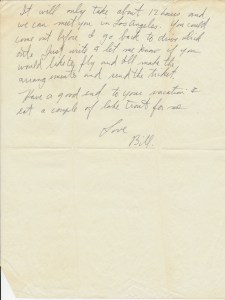 It will only take about 12 hours and
we can meet you in Los Angeles. You could
come out before I go back to demo sled
ests. Just write & let me know if you
would like to fly and I'll make the
arrangements and send the ticket.
Have a good end to your vacation &
eat a couple of lake trout for me
Love
Bill.